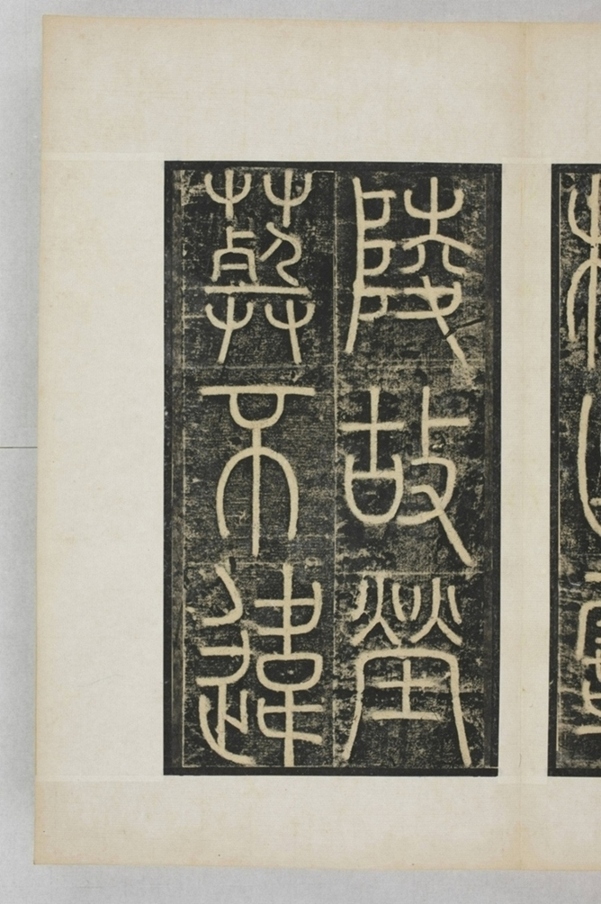 陵故塋
葬不違